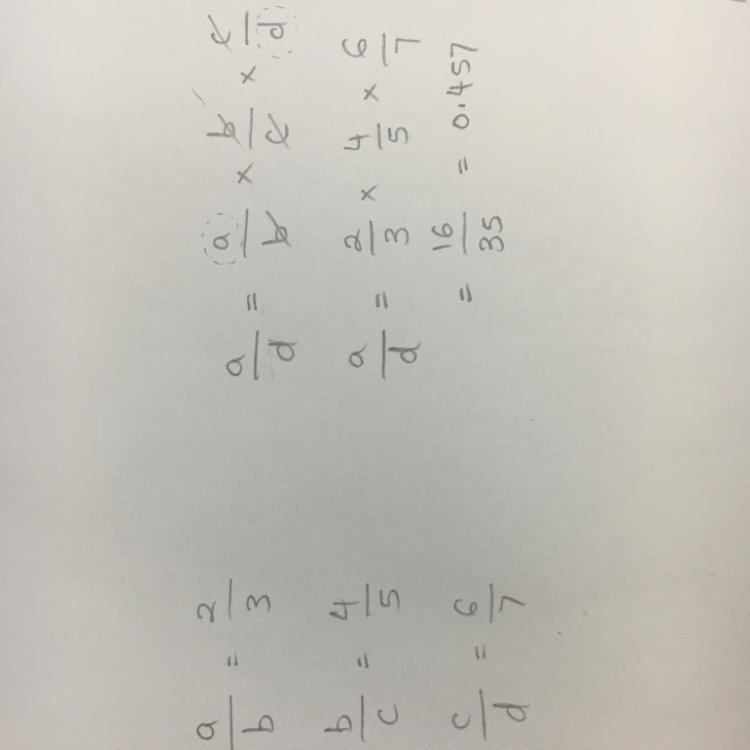 a/b = 2/3
b/c = 4/5
c/d = 6/7
a/d = a/b × b/c × c/d
a/d = 2/3 × 4/5 × 6/7
= 16/35 = 0.457